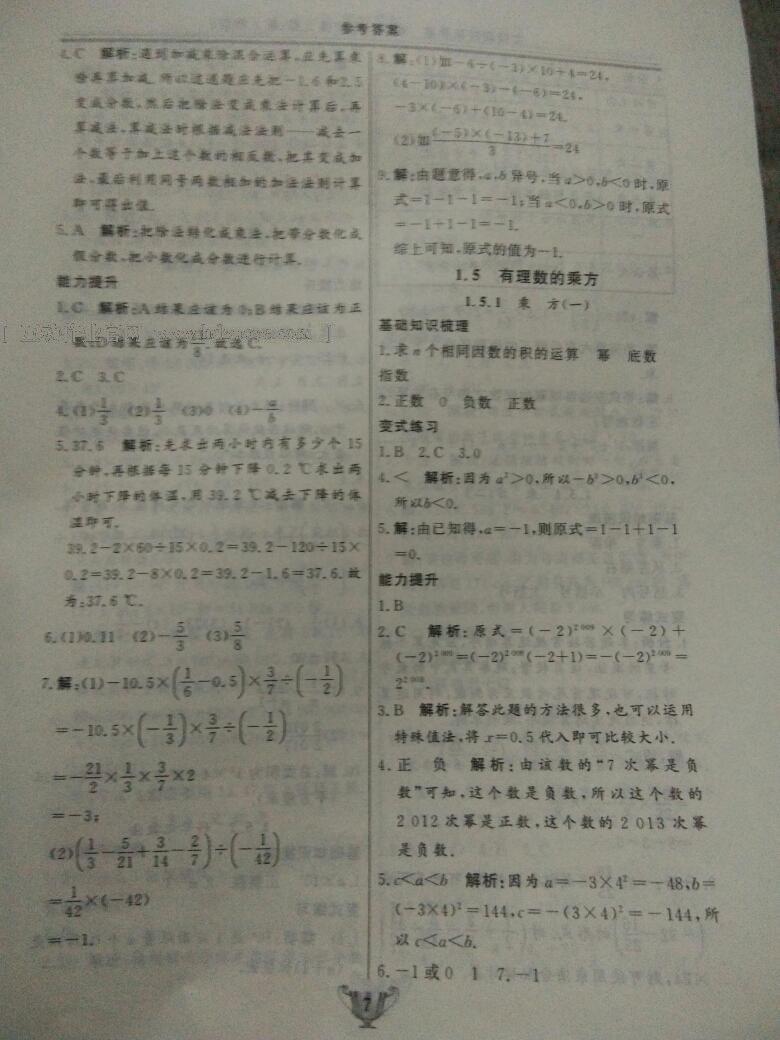 参考答案
4.C 解析:遇到加减乘除混合运算,应先算乘
除再算加减.所以这道题应先把-1.6和2.5
变成分数,然后把除法变成乘法计算后,再
算减法,算减法时根据减法法则——减去一
个数等于加上这个数的相反数,把其变成加
法,最后利用同号两数相加的加法法则计算
即可得出值.
5.A 解析:把除法转化成乘法,把带分数化成
假分数,把小数化成分数进行计算.
能力提升
1.C 解析:A结果应该为0;B结果应该为正
数;D结果应该为 /8.故选C.
2.C 3.C
4.(1)1/3 (2)1/3 (3)0 (4)-a/b
5.37.6 解析:先求出两小时内有多少个15
分钟,再根据每15分钟下降0.2℃求出两
小时下降的体温,用39.2℃减去下降的体
温即可.
39.2-2×60÷15×0.2=39.2-120÷15×
0.2=39.2-8×0.2=39.2-1.6=37.6.故
为:37.6℃.
6.(1)0.11 (2)-5/3 (3)5/8
7.解:(1)-10.5×(1/6-0.5)×3/7÷(-1/2)
=-10.5×(-1/3)×3/7÷(-1/2)
=-21/2×1/3×3/7×2
=-3;
(2)(1/3-5/21+3/14-2/7)÷(-1/42)
=1/42×(-42)
=-1.
8.解:(1)如-4÷(-3)×10+4=24,
(4-10)×(-3)-(-6)=24,
-3×(-6)+(10-4)=24.
(2)如((-5)×(-13)+7)/3=24
9.解:由题意得,a,b异号,当a>0,b<0时,原
式=1-1-1=-1;当a<0,b>0时,原式
=-1+1-1=-1.
综上可知,原式的值为-1.
1.5 有理数的乘方
1.5.1 乘 方(一)
基础知识梳理
1.求n个相同因数的积的运算 幂 底数
指数
2.正数 0 负数 正数
变式练习
1.B 2.C 3.0
4.< 解析:因为a²>0,所以-b³>0,b³<0,
所以b<0.
5.解:由已知得,a=-1,则原式=1-1+1-1
=0.
能力提升
1.B
2.C 解析:原式=(-2)²⁰⁰⁹×(-2)+
(-2)²⁰⁰⁹=(-2)²⁰⁰⁹(-2+1)=-(-2)²⁰⁰⁹=
2²⁰⁰⁹.
3.B 解析:解答此题的方法很多,也可以运用
特殊值法,将x=0.5代入即可比较大小.
4.正 负 解析:由该数的“7次幂是负
数”可知,这个数是负数,所以这个数的
2 012次幂是正数,这个数的2 013次幂
是负数.
5.c<a<b 解析:因为a=-3×4²=-48,b=
(-3×4)²=144,c=-(3×4)²=-144,所
以c<a<b.
6.-1或0 1 7.-1
7